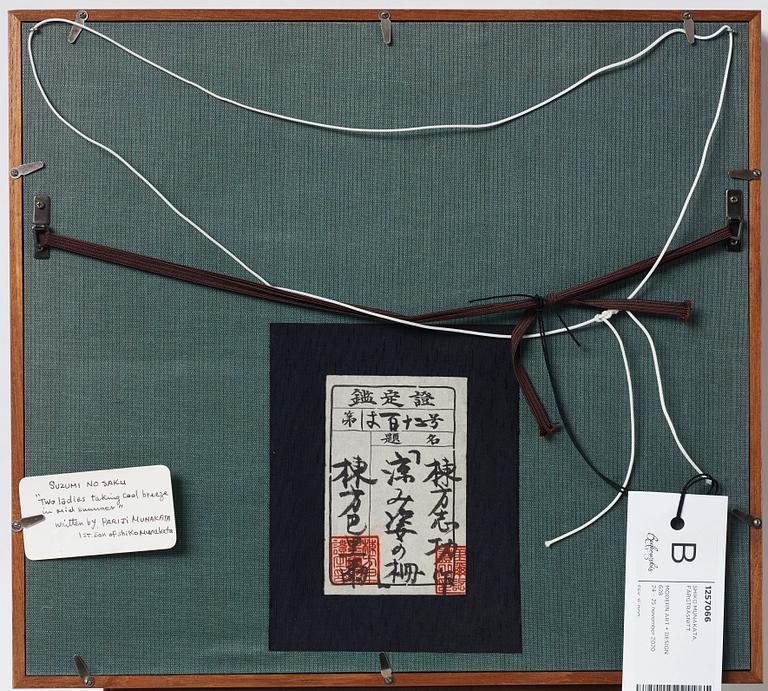 鑑定證
第は百十二号
題名
棟方志功
「涼み姿の柵」
棟方巴里爾
SUZUMI NO SAKU
"Two ladies taking cool breeze
in mid summer"
written by PARIJI MUNAKATA
1st. son of Shiko Munakata
B
Bukowskis
1257066
SHIKO MUNAKATA,
FÄRGTRÄSNITT.
MODERN ART + DESIGN
628
24 - 25 november 2020